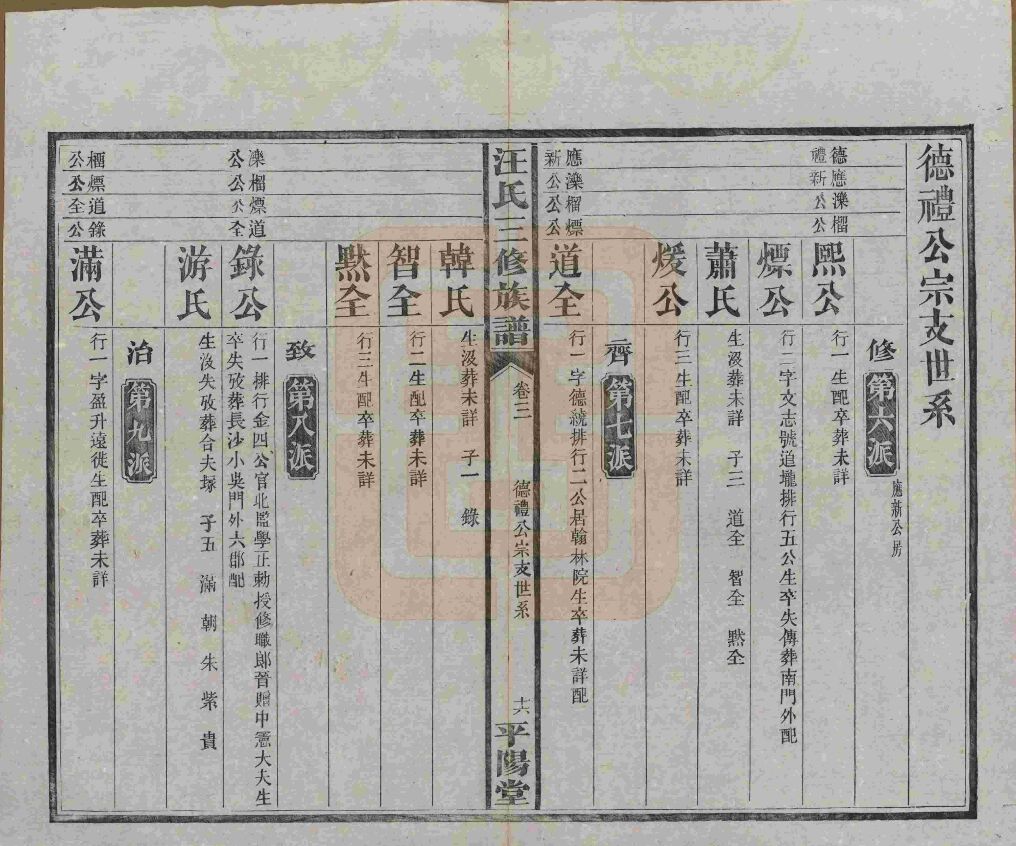 德禮公宗支世系
修 第六派 應新公房
德應濼榴
禮新公公
熙公 行一生配卒葬未詳
熛公 行二字文志號道壠排行五公生卒失傳葬南門外配
蕭氏 生歿葬未詳 子三 道全 智全 黙全
煖公 行三生配卒葬未詳
齊 第七派
應濼榴熛
新公公公
道全 行一字德統排行二公居翰林院生卒葬未詳配
汪氏三修族譜 卷三 德禮公宗支世系 十六 平陽堂
韓氏 生歿葬未詳 子一 錄
智全 行二生配卒葬未詳
黙全 行三生配卒葬未詳
致 第八派
濼榴熛道
公公公全
錄公 行一排行金四公官北監學正勅授修職郎晉贈中憲大夫生
卒失攷葬長沙小吳門外大郡配
游氏 生歿失攷葬合夫塚 子五 滿 朝 朱 紫 貴
治 第九派
榴熛道錄
公公全公
滿公 行一字盈升遠徙生配卒葬未詳